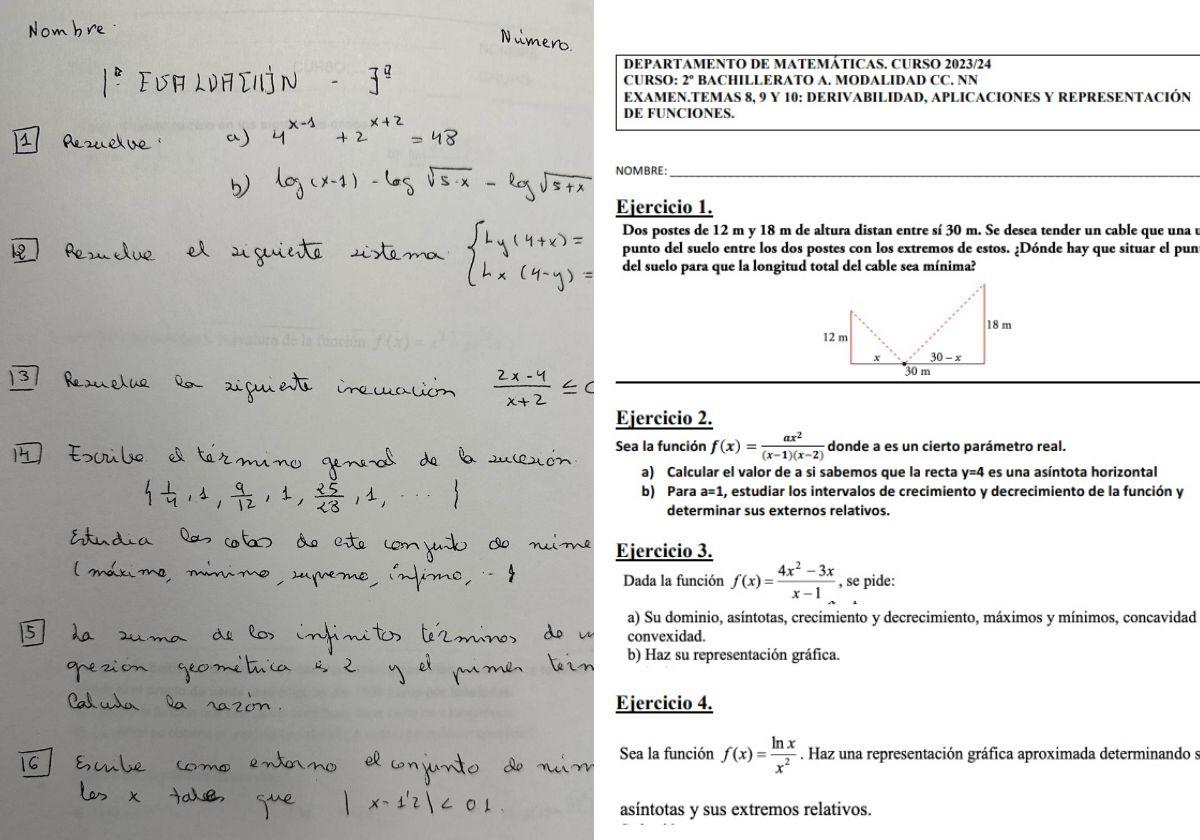 Nombre.
Número.
1ª EVALUACIÓN - 3ª
1 Resuelve: a) 4^(x-1) + 2^(x+2) = 48
b) log (x-1) - log √5-x - log √5+x
2 Resuelve el siguiente sistema
{ L y (4+x) =
{ L x (4-y) =
3 Resuelve la siguiente inecuación (2x-4)/(x+2) ≤
4 Escribe el término general de la sucesión.
{ 1/4, 1, 9/12, 1, 25/28, 1, ... }
Estudia las cotas de este conjunto de núme
(máximo, mínimo, supremo, ínfimo, ..
5 La suma de los infinitos términos de
gresión geométrica es 2 y el primer térm
Calcula la razón.
6 Escribe como entorno el conjunto de núm
les x tales que | x - 1'2 | < 01.
DEPARTAMENTO DE MATEMÁTICAS. CURSO 2023/24
CURSO: 2º BACHILLERATO A. MODALIDAD CC. NN
EXAMEN.TEMAS 8, 9 Y 10: DERIVABILIDAD, APLICACIONES Y REPRESENTACIÓN
DE FUNCIONES.
NOMBRE:
Ejercicio 1.
Dos postes de 12 m y 18 m de altura distan entre sí 30 m. Se desea tender un cable que una u
punto del suelo entre los dos postes con los extremos de estos. ¿Dónde hay que situar el pun
del suelo para que la longitud total del cable sea mínima?
12 m
18 m
x
30 – x
30 m
Ejercicio 2.
Sea la función f(x) = ax²/((x−1)(x−2)) donde a es un cierto parámetro real.
a) Calcular el valor de a si sabemos que la recta y=4 es una asíntota horizontal
b) Para a=1, estudiar los intervalos de crecimiento y decrecimiento de la función y
determinar sus externos relativos.
Ejercicio 3.
Dada la función f(x) = (4x² − 3x)/(x − 1), se pide:
a) Su dominio, asíntotas, crecimiento y decrecimiento, máximos y mínimos, concavidad
convexidad.
b) Haz su representación gráfica.
Ejercicio 4.
Sea la función f(x) = ln x/x². Haz una representación gráfica aproximada determinando s
asíntotas y sus extremos relativos.